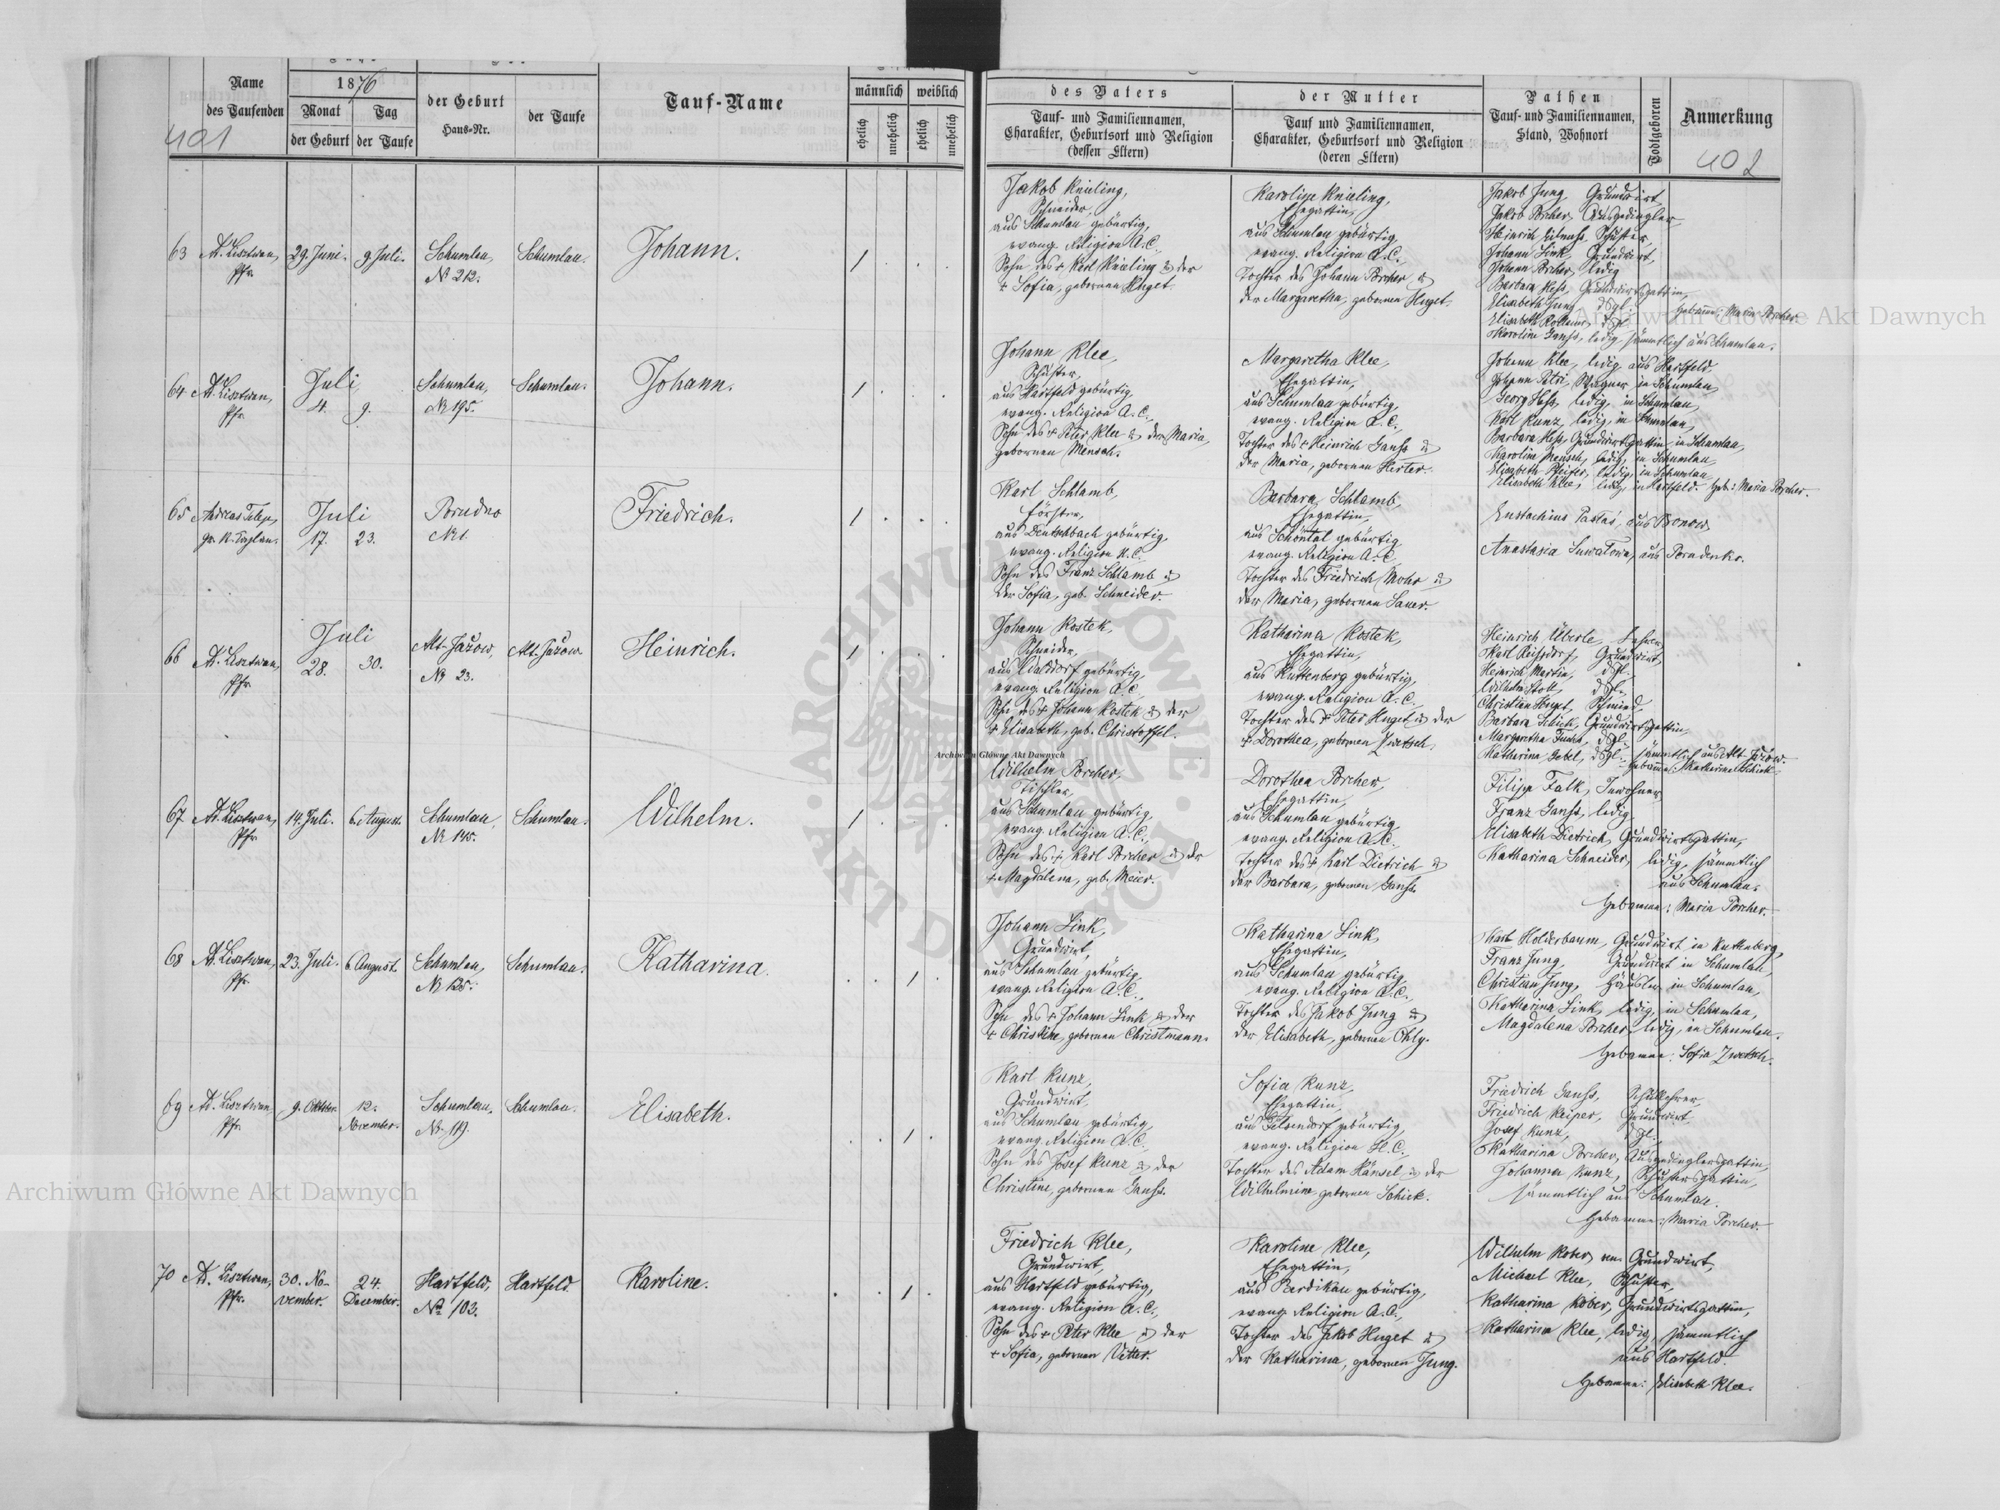 401
Name
des Taufenden
1876
Monat
Tag
der Geburt
der Taufe
der Geburt
Haus-Nr.
der Taufe
Tauf-Name
männlich
weiblich
ehelich
unehelich
ehelich
unehelich
des Vaters
Tauf- und Familiennamen,
Charakter, Geburtsort und Religion
(dessen Eltern)
der Mutter
Tauf und Familiennamen,
Charakter, Geburtsort und Religion
(deren Eltern)
Pathen
Tauf- und Familiennamen,
Stand, Wohnort
Todtgeboren
Anmerkung
402
63
Ad. Lisztwan,
Pfr.
29. Juni.
9. Juli.
Schumlau,
№ 212.
Schumlau.
Johann.
1
Jakob Knieling,
Schneider,
aus Schumlau gebürtig,
evang. Religion A. C.,
Sohn des + Karl Knieling & der
+ Sofia, gebornen Huget.
Karoline Knieling,
Ehegattin,
aus Schumlau gebürtig,
evang. Religion A. C.,
Tochter des Johann Porcher &
der Margaretha, gebornen Huget.
Jakob Jung, Grundwirt,
Jakob Porcher, Ausgedingler,
Heinrich Schuster,
Johann Link, Grundwirt,
Johann Porcher, ledig
Barbara Hess, Grundwirtsgattin,
Elisabeth Jung, dsgl.
Elisabeth dsgl.
Karoline Ganss, ledig, sämmtlich aus Schumlau.
Hebamme: Maria Porcher
64
Ad. Lisztwan,
Pfr.
Juli
4.
9.
Schumlau,
№ 195.
Schumlau.
Johann.
1
Johann Klee,
Schuster,
aus Hartfeld gebürtig
evang. Religion A. C.,
Sohn des + Peter Klee & der Maria,
gebornen Mensch.
Margaretha Klee,
Ehegattin,
aus Schumlau gebürtig,
evang. Religion A. C.,
Tochter des + Heinrich Ganss &
der Maria, gebornen Herter.
Johann Klee, ledig aus Hartfeld,
Johann Petri, Wagner in Schumlau,
Georg Hess, ledig, in Schumlau,
Karl Kunz, ledig, in Schumlau,
Barbara Hess, Grundwirtsgattin in Schumlau,
Karoline Mensch, ledig, in Schumlau,
Elisabeth Pfeifer, ledig, in Schumlau
Elisabeth Klee, ledig, in Hartfeld. Heb.: Maria Porcher.
65
Andreas
gr. k. Caplan.
Juli
17.
23.
Porudno
№ 1.
Friedrich.
1
Karl Schlamb,
Förster,
aus Deutschbach gebürtig,
evang. Religion H. C.
Sohn des Franz Schlamb &
der Sofia, geb. Schneider.
Barbara Schlamb,
Ehegattin,
aus Schöntal gebürtig
evang. Religion A. C.
Tochter des Friedrich Mohr &
der Maria, gebornen Sauer.
Eustachius aus Bonow
Anastasia aus Porudenko.
66
Ad. Lisztwan,
Pfr.
Juli
28.
30.
Alt-Jażow,
№ 23.
Alt-Jażow.
Heinrich.
1
Johann Kostek,
Schneider,
aus Walddorf gebürtig,
evang. Religion A. C.
Sohn des + Johann Kostek & der
+ Elisabeth, geb. Christoffel.
Katharina Kostek,
Ehegattin,
aus Kuttenberg gebürtig,
evang. Religion A. C.,
Tochter des + Peter Huget & der
+ Dorothea, gebornen Zwetsch.
Heinrich Überle, Lehrer,
Karl Reihsdorf, Grundwirt,
Heinrich Martin, dsgl.
Wilhelm Stott, dsgl.
Christian Huget, Schmied,
Barbara Schick, Grundwirtsgattin,
Margaretha dsgl.
Katharina Gebel, dsgl. sämmtlich aus Alt-Jażow.
Hebamme: Katharina Schick.
67
Ad. Lisztwan,
Pfr.
14. Juli.
6. August.
Schumlau,
№ 145.
Schumlau.
Wilhelm.
1
Wilhelm Porcher,
Tischler,
aus Schumlau gebürtig,
evang. Religion A. C.,
Sohn des + Karl Porcher & der
+ Magdalena, geb. Meier.
Dorothea Porcher,
Ehegattin,
aus Schumlau gebürtig
evang. Religion A. C.,
Tochter des + Karl Dietrich &
der Barbara, gebornen Ganss.
Filipp Falk, Inwohner
Franz Ganss, ledig.
Elisabeth Dietrich, Grundwirtsgattin,
Katharina Schneider, ledig, sämmtlich
aus Schumlau.
Hebamme: Maria Porcher.
68
Ad. Lisztwan,
Pfr.
23. Juli.
6. August.
Schumlau,
№ 135.
Schumlau.
Katharina.
1
Johann Link,
Grundwirt,
aus Schumlau gebürtig,
evang. Religion A. C.,
Sohn des + Johann Link & der
+ Christine, gebornen Christmann.
Katharina Link,
Ehegattin,
aus Schumlau gebürtig,
evang. Religion A. C.,
Tochter des Jakob Jung &
der Elisabeth, gebornen Ohly.
Karl Holderbaum, Grundwirt in Kuttenberg,
Franz Jung, Grundwirt in Schumlau,
Christian Jung, Häusler in Schumlau,
Katharina Link, ledig, in Schumlau,
Magdalena Porcher, ledig, in Schumlau.
Hebamme: Sofia Zwetsch.
69
Ad. Lisztwan,
Pfr.
9. Oktober.
12.
November.
Schumlau,
№ 119.
Schumlau.
Elisabeth.
1
Karl Kunz,
Grundwirt,
aus Schumlau gebürtig,
evang. Religion A. C.,
Sohn des Josef Kunz & der
Christine, gebornen Ganss.
Sofia Kunz,
Ehegattin,
aus Felsendorf gebürtig,
evang. Religion H. C.,
Tochter des Adam Hänsel & der
Wilhelmine, gebornen Schick.
Friedrich Ganss, Schullehrer,
Friedrich Keiper, Grundwirt
Josef Kunz, dsgl.
Katharina Porcher, Ausgedinglersgattin,
Johanna Kunz, Schustersgattin,
sämmtlich aus Schumlau.
Hebamme: Maria Porcher
70
Ad. Lisztwan,
Pfr.
30. No-
vember.
24.
Dezember.
Hartfeld,
№ 103.
Hartfeld.
Karoline.
1
Friedrich Klee,
Grundwirt,
aus Hartfeld gebürtig,
evang. Religion A. C.,
Sohn des + Peter Klee & der
+ Sofia, gebornen Vetter.
Karoline Klee,
Ehegattin,
aus Berdikau gebürtig,
evang. Religion A. C.,
Tochter des Jakob Huget &
der Katharina, gebornen Jung.
Wilhelm Kober, Grundwirt,
Michael Klee, Schuster,
Katharina Kober, Grundwirtsgattin,
Katharina Klee, ledig, sämmtlich
aus Hartfeld.
Hebamme: Elisabeth Klee.
Archiwum Główne Akt Dawnych
Archiwum Główne Akt Dawnych
Archiwum Główne Akt Dawnych
ARCHIWUM GŁÓWNE AKT DAWNYCH